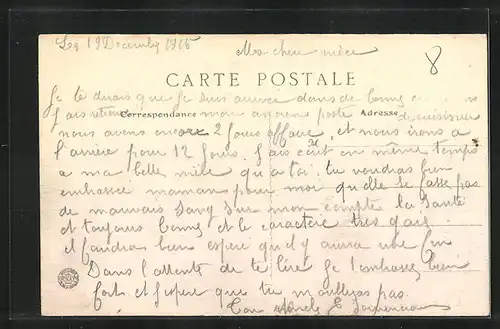 Le 19 Decembre 1916
Ma chere nièce
8
CARTE POSTALE
Je te dirais que je suis arrivé dans de bonnes
Correspondance
Adresse
J'ais mon ancien poste de cuisinier
nous avons encore 2 jours affaire, et nous irons a
l'arrière pour 12 jours. J'ais écrit en même temps
a ma belle mère qu'a toi, tu vendras bien
embrassé maman pour moi qu'elle se fasse pas
de mauvais sang sur mon compte la santé
et toujours bonne et le caractère très gais
et faudras bien espéré qu'il y aurra une fin
Dans l'attente de te lire je t'embrasse bien
fort et j'espère que tu m'oublyas pas.
Ton oncle E